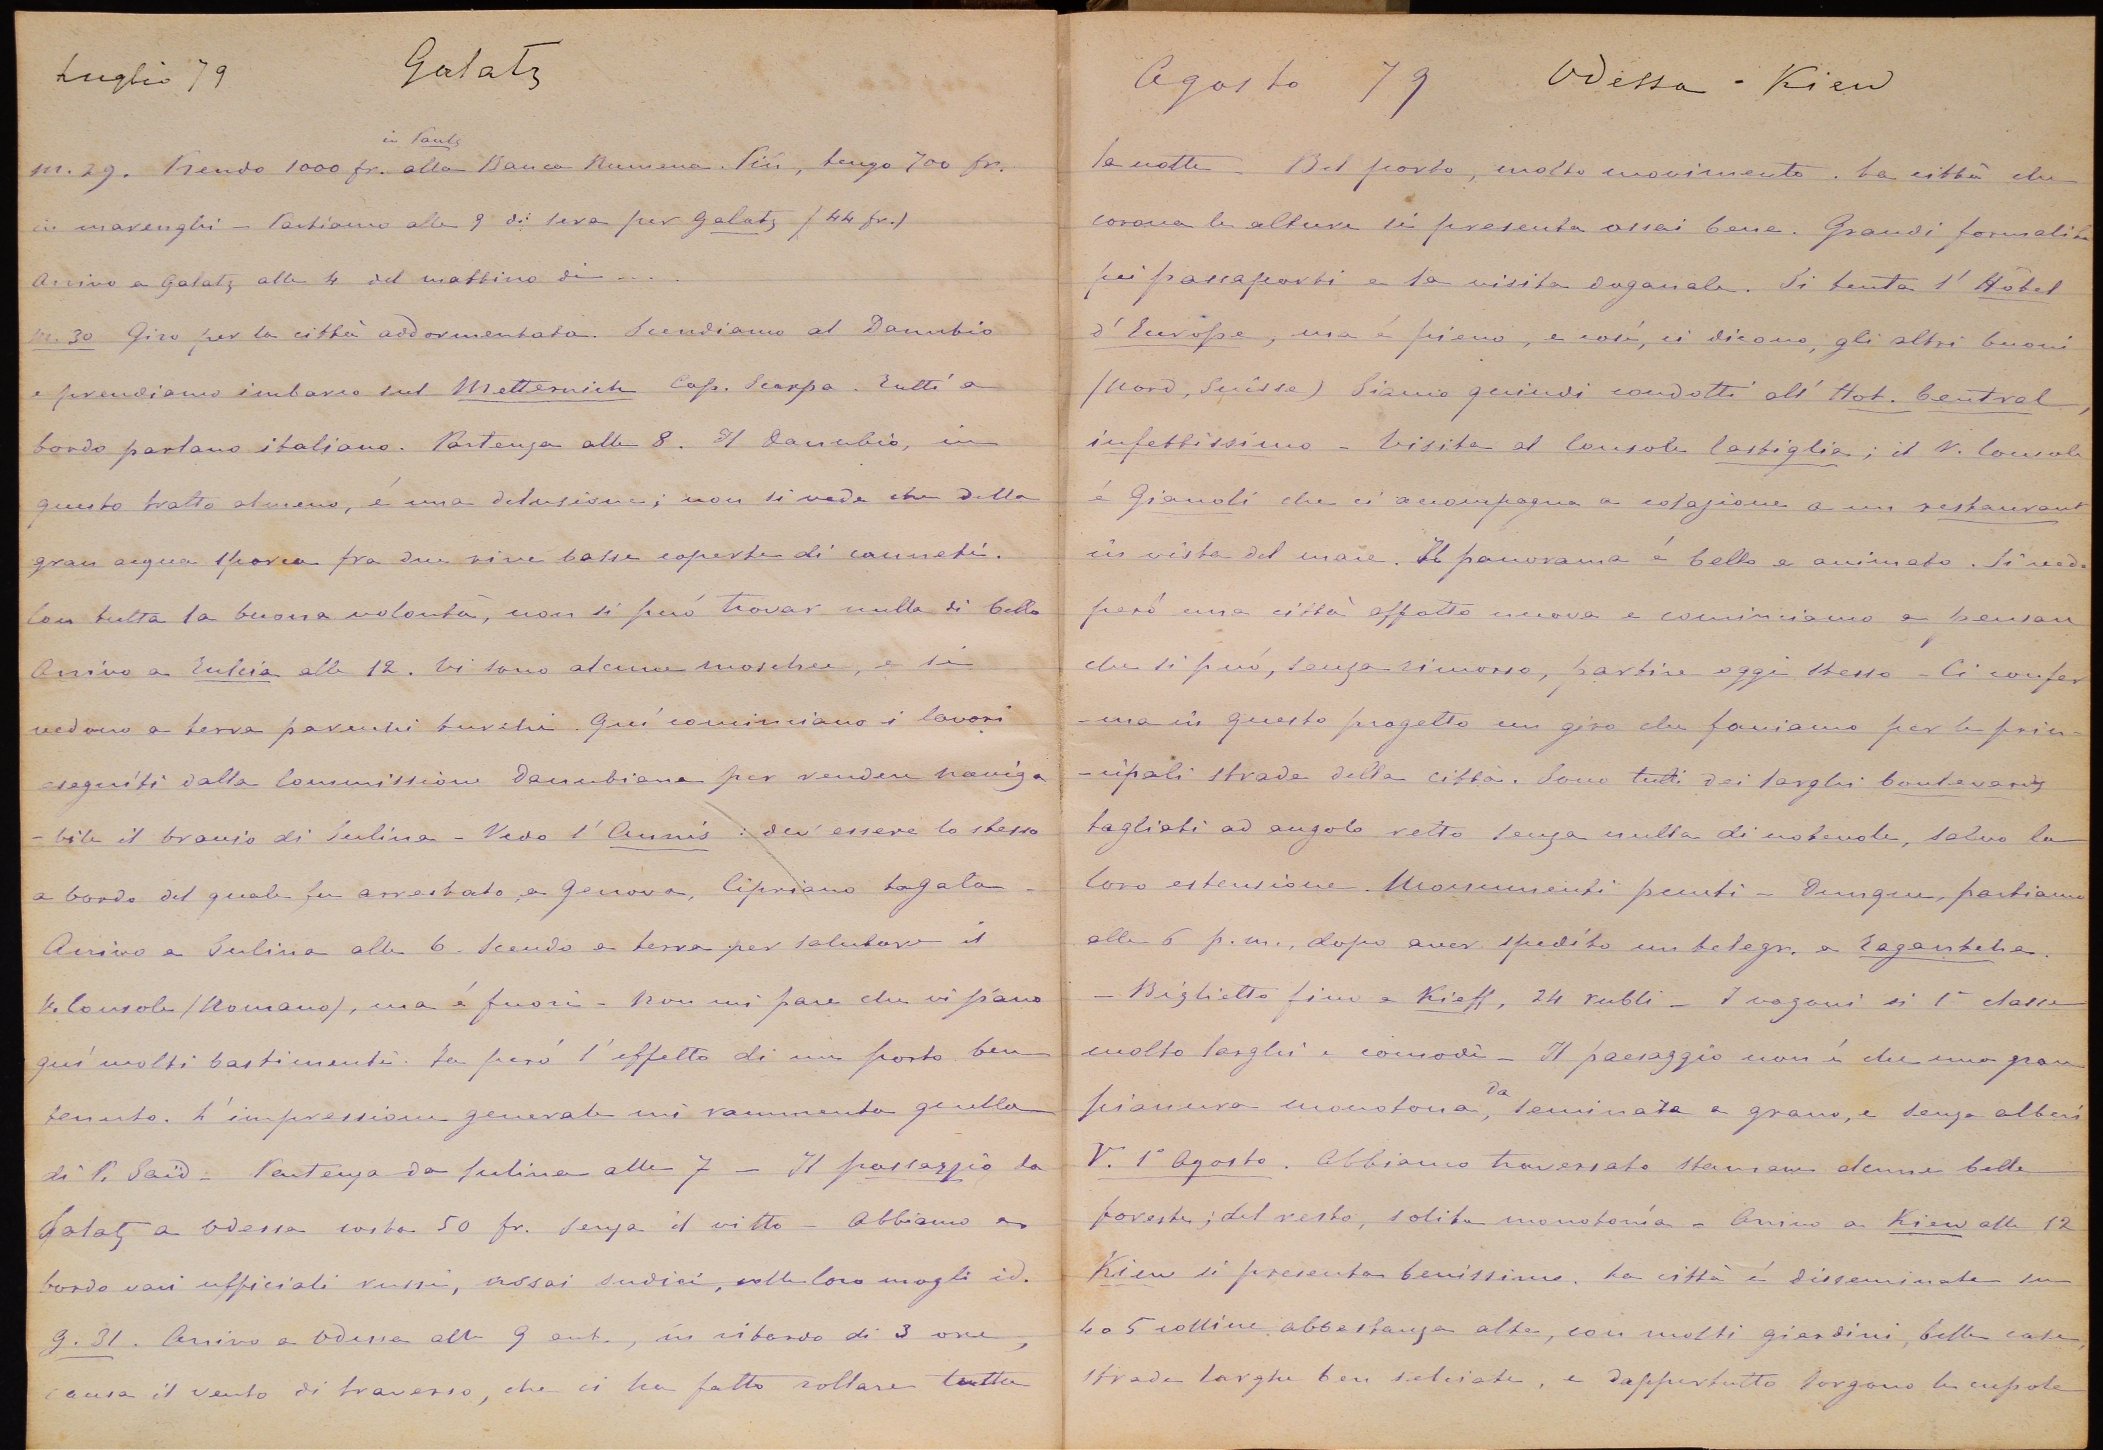 Luglio 79 Galatz
in Pauls
M. 29. Prendo 1000 fr. alla Banca Rumena. Più, tengo 700 fr.
in marenghi - Partiamo alle 9 di sera per Galatz (44 fr.)
Arrivo a Galatz alle 4 del mattino di ....
M. 30 Giro per la città addormentata. Scendiamo al Danubio
e prendiamo imbarco sul Metternich Cap. Scarpa. Tutti a
bordo parlano italiano. Partenza alle 8. Il Danubio, in
questo tratto almeno, é una delusione; non si vede che della
gran acqua sporca fra due rive basse coperte di canneti.
Con tutta la buona volontà, non si può trovar nulla di bello
Arrivo a Tulcia alle 12. Vi sono alcune moschee, e si
vedono a terra parecchi turchi. Qui cominciano i lavori
eseguiti dalla Commissione Danubiana per rendere naviga
-bile il braccio di Sulina - Vedo l'Aunis: dev'essere lo stesso
a bordo del quale fu arrestato, a Genova, Cipriano LaGala -
Arrivo a Sulina alle 6 - Scendo a terra per salutare il
V. Console (Romano), ma é fuori - Non mi pare che vi siano
qui molti bastimenti. Fa però l'effetto di un porto ben
tenuto. L'impressione generale mi rammenta quella
di P. Saïd - Partenza da Sulina alle 7 - Il passaggio da
Galatz a Odessa costa 50 fr. senza il vitto - Abbiamo a
bordo vari ufficiali russi, assai sudici, colle loro mogli id.
G. 31. Arrivo a Odessa alle 9 ant., in ritardo di 3 ore,
causa il vento di traverso, che ci ha fatto rollare tutta
Agosto 79 Odessa - Kiew
la notte - Bel porto, molto movimento. La città che
corona le alture si presenta assai bene. Grandi formalità
pei passaporti e la visita doganale. Si tenta l'Hôtel
d'Europe, ma é pieno, e così, ci dicono, gli altri buoni
(Nord, Suisse) Siamo quindi condotti all'Hot. Central,
infettissimo - Visita al Console Castiglia; il V. Console
é Gianoli che ci accompagna a colazione a un restaurant
in vista del mare. Il panorama é bello e animato. Si vede
però una città affatto nuova e cominciamo a pensare
che si può, senza rimorso, partire oggi stesso - Ci confer
-ma in questo progetto un giro che facciamo per le prin-
-cipali strade della città. Sono tutti dei larghi boulevards
tagliati ad angolo retto senza nulla di notevole, salvo la
loro estensione. Monumenti punti - Dunque, partiamo
alle 6 p.m., dopo aver spedito un telegr. a
- Biglietto fino a Kieff, 24 rubli - I vagoni di 1ª classe
molto larghi e comodi - Il paesaggio non é che una gran
pianura monotona, da seminata a grano, e senza alberi
V. 1° Agosto. Abbiamo traversato stamane alcune belle
foreste; del resto, solita monotonia - Arrivo a Kiew alle 12
Kiew si presenta benissimo. La città é disseminata su
4 o 5 colline abbastanza alte, con molti giardini, belle case,
strade larghe ben selciate, e dappertutto sorgono le cupole